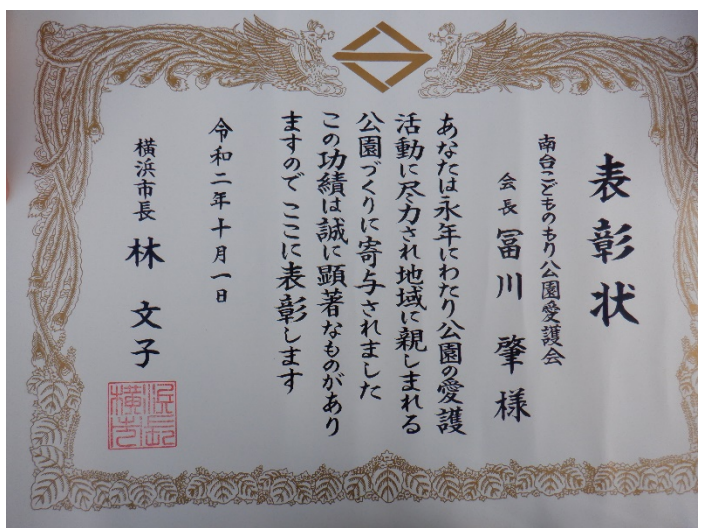 表彰状
南台こどものもり公園愛護会
会長 冨川 肇 様
あなたは永年にわたり公園の愛護
活動に尽力され地域に親しまれる
公園づくりに寄与されました
この功績は誠に顕著なものがあり
ますのでここに表彰します
令和二年十月一日
横浜市長 林 文子
横浜市長